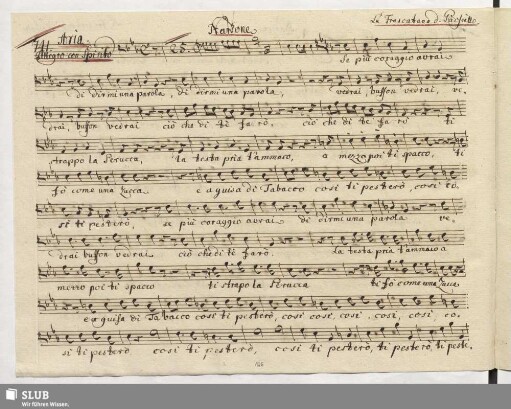 Nardone
La Frascatana d. Paesiello
Aria
Allegro con Spirito
25
Se più coraggio avrai
di dirmi una parola, di dirmi una parola, vedrai, buffon vedrai, ve-
drai, buffon vedrai ciò che di te farò. ciò che di te farò ti
strappo la Perucca, la testa pria t'ammacco, a mezzo poi ti spacco, ti
fò come una Zucca e a guisa di Tabacco così ti pesterò, così co-
sì ti pesterò, se più coraggio avrai di dirmi una parola ve-
drai buffon vedrai ciò che di te farò. la testa pria t'ammacco a
mezzo poi ti spacco ti strapo la Perucca ti fò come una Zucca,
e a guisa di Tabacco così ti pesterò, così così, così, così, co-
sì ti pesterò così ti pesterò, così ti pesterò, ti pesterò, ti peste-
SLUB
Wir führen Wissen.